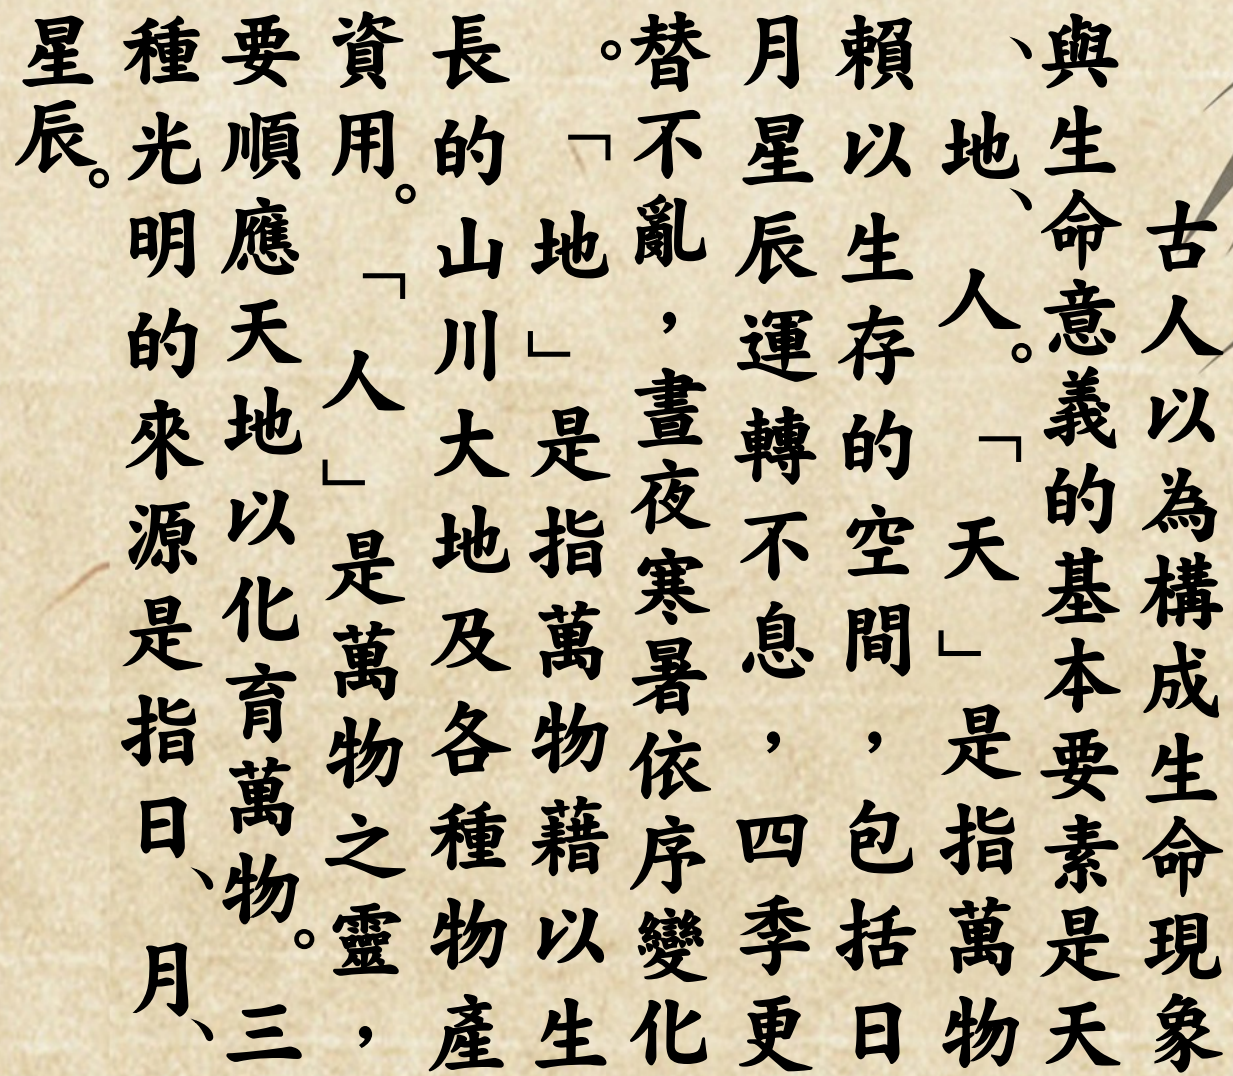 古人以為構成生命現象
與生命意義的基本要素是天
、地、人。「天」是指萬物
賴以生存的空間，包括日
月星辰運轉不息，四季更
替不亂，晝夜寒暑依序變化
。「地」是指萬物藉以生
長的山川大地及各種物產
資用。「人」是萬物之靈，
要順應天地以化育萬物。三
種光明的來源是指日、月、
星辰。